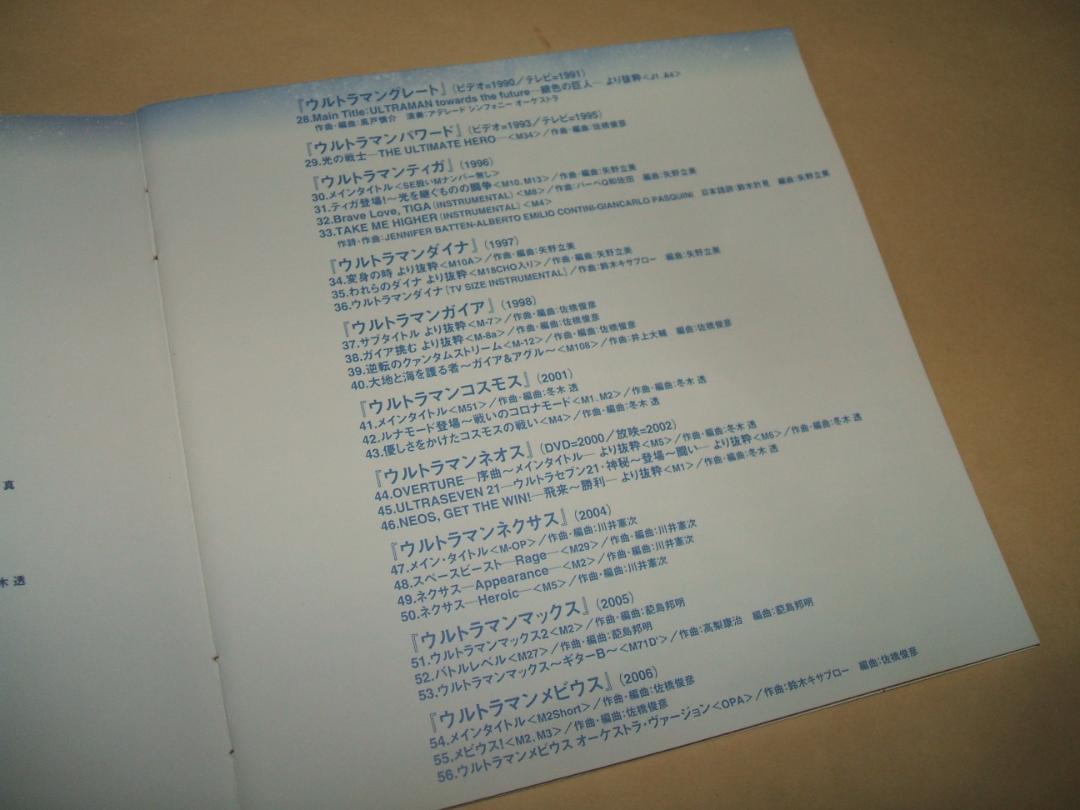 真
木 透
『ウルトラマングレート』(ビデオ=1990/テレビ=1991)
28.Main Title:ULTRAMAN towards the future―銀色の巨人― より抜粋<J1. A4>
作曲・編曲:風戸慎介 演奏:アデレード シンフォニー オーケストラ
『ウルトラマンパワード』(ビデオ=1993/テレビ=1995)
29.光の戦士―THE ULTIMATE HERO―<M34>/作曲・編曲:佐橋俊彦
『ウルトラマンティガ』(1996)
30.メインタイトル<SE扱いMナンバー無し>
31.ティガ登場!~光を継ぐものの闘争<M10. M13>/作曲・編曲:矢野立美
32.Brave Love, TIGA (INSTRUMENTAL) <M8>/作曲:バーベQ和佐田 編曲:矢野立美
33.TAKE ME HIGHER (INSTRUMENTAL) <M4>
作詩・作曲:JENNIFER BATTEN-ALBERTO EMILIO CONTINI-GIANCARLO PASQUINI 日本語詞:鈴木計見 編曲:矢野立美
『ウルトラマンダイナ』(1997)
34.変身の時 より抜粋<M10A>/作曲・編曲:矢野立美
35.われらのダイナ より抜粋<M18CHO入り>/作曲・編曲:矢野立美
36.ウルトラマンダイナ [TV SIZE INSTRUMENTAL]/作曲:鈴木キサブロー 編曲:矢野立美
『ウルトラマンガイア』(1998)
37.サブタイトル より抜粋<M-7>/作曲・編曲:佐橋俊彦
38.ガイア挑む より抜粋<M-8a>/作曲・編曲:佐橋俊彦
39.逆転のクァンタムストリーム<M-12>/作曲・編曲:佐橋俊彦
40.大地と海を護る者~ガイア&アグル~<M108>/作曲:井上大輔 編曲:佐橋俊彦
『ウルトラマンコスモス』(2001)
41.メインタイトル<M51>/作曲・編曲:冬木 透
42.ルナモード登場~戦いのコロナモード<M1. M2>/作曲・編曲:冬木 透
43.優しさをかけたコスモスの戦い<M4>/作曲・編曲:冬木 透
『ウルトラマンネオス』(DVD=2000/放映=2002)
44.OVERTURE―序曲~メインタイトル― より抜粋<M5>/作曲・編曲:冬木 透
45.ULTRASEVEN 21―ウルトラセブン21・神秘~登場~闘い― より抜粋<M6>/作曲・編曲:冬木 透
46.NEOS, GET THE WIN!―飛来~勝利― より抜粋<M1>/作曲・編曲:冬木 透
『ウルトラマンネクサス』(2004)
47.メイン・タイトル<M-OP>/作曲・編曲:川井憲次
48.スペースビースト―Rage―<M29>/作曲・編曲:川井憲次
49.ネクサス―Appearance―<M2>/作曲・編曲:川井憲次
50.ネクサス―Heroic―<M5>/作曲・編曲:川井憲次
『ウルトラマンマックス』(2005)
51.ウルトラマンマックス2<M2>/作曲・編曲:蓜島邦明
52.バトルレベル<M27>/作曲・編曲:蓜島邦明
53.ウルトラマンマックス~ギターB~<M71D'>/作曲:高梨康治 編曲:蓜島邦明
『ウルトラマンメビウス』(2006)
54.メインタイトル<M2Short>/作曲・編曲:佐橋俊彦
55.メビウス!<M2. M3>/作曲・編曲:佐橋俊彦
56.ウルトラマンメビウス オーケストラ・ヴァージョン<OPA>/作曲:鈴木キサブロー 編曲:佐橋俊彦